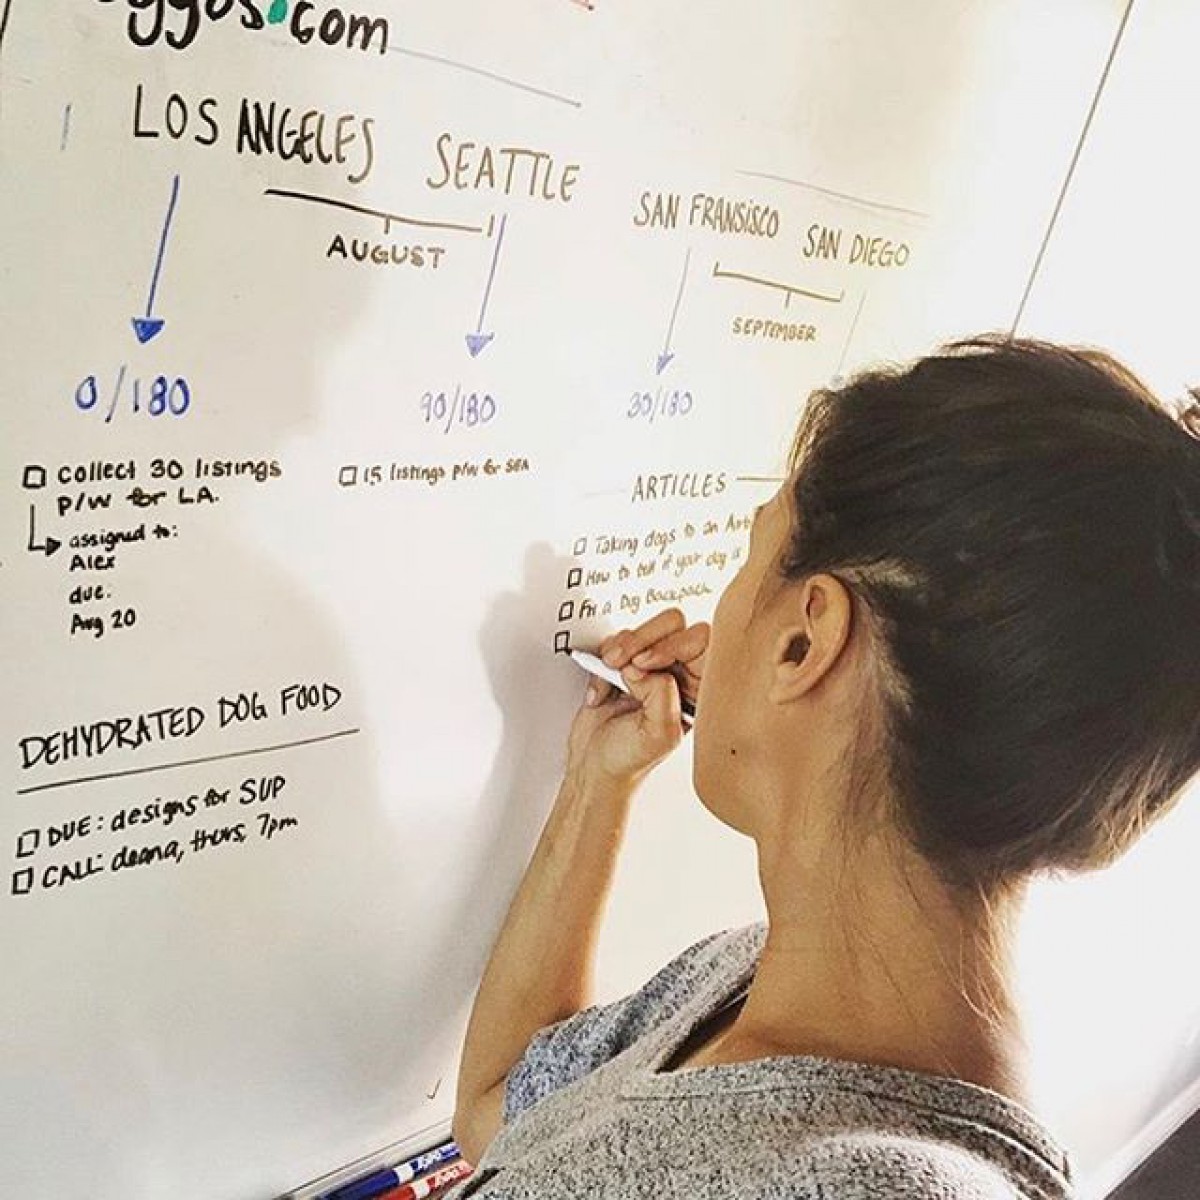 .com
LOS ANGELES SEATTLE
SAN FRANSiSCO SAN DIEGO
AUGUST
SEPTEMBER
0/180
90/180
30/180
collect 30 listings
P/W for LA.
assigned to:
Alex
due:
Aug 20
15 listings P/W for SEA
ARTICLES
Taking dogs to an
How to tell if your dog is
a Dog Backpack
DEHYDRATED DOG FOOD
DUE: designs for SUP
CALL: deana, thurs, 7pm